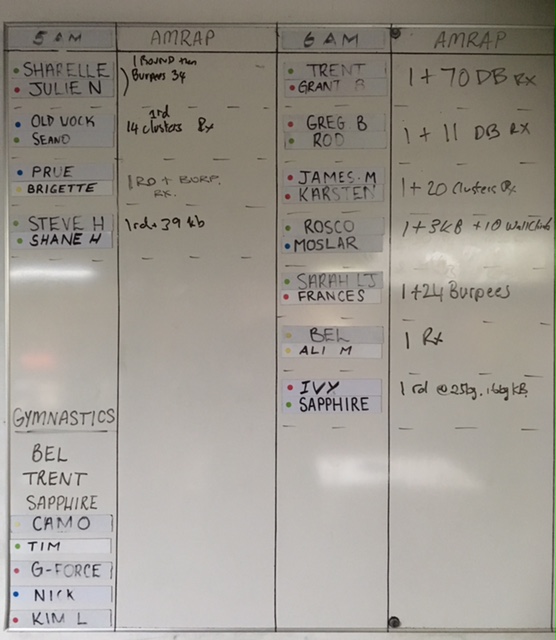 5 AM
AMRAP
SHARELLE
JULIE N
1 ROUND then
Burpees 34
OLD VOCK
SEANO
1rd
14 clusters Rx
PRUE
BRIGETTE
1 RD + BURP.
RX.
STEVE H
SHANE H
1rd + 39 kb
GYMNASTICS
BEL
TRENT
SAPPHIRE
CAMO
TIM
G-FORCE
NICK
KIM L
6 AM
AMRAP
TRENT
GRANT
1 + 70 DB Rx
GREG B
ROD
1 + 11 DB Rx
JAMES.M
KARSTEN
1 + 20 Clusters Rx
ROSCO
MOSLAR
1 + 3KB + 10 Wall
SARAH LJ
FRANCES
1 + 24 Burpees
BEL
ALI M
1 Rx
IVY
SAPPHIRE
1 rd @ 25kg, 16kg KB